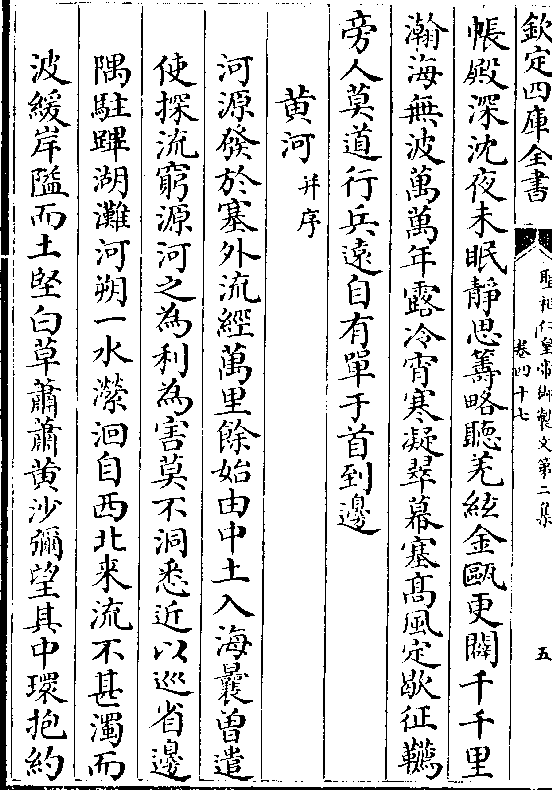 欽定四庫全書
聖祖仁皇帝御製文第二集
卷四十七
五
帳殿深沈夜未眠靜思籌略聽羌絃金甌更闢千千里
瀚海無波萬萬年露冷宵寒凝翠幕塞髙風定歇征韉
旁人莫道行兵逺自有單于首到邊
黄河并序
河源發於塞外流經萬里餘始由中土入海曩曾遣
使探流窮源河之為利為害莫不洞悉近以巡省邊
隅駐蹕湖灘河朔一水瀠洄自西北來流不甚濁而
波緩岸隘而土堅白草蕭蕭黄沙彌望其中環抱約